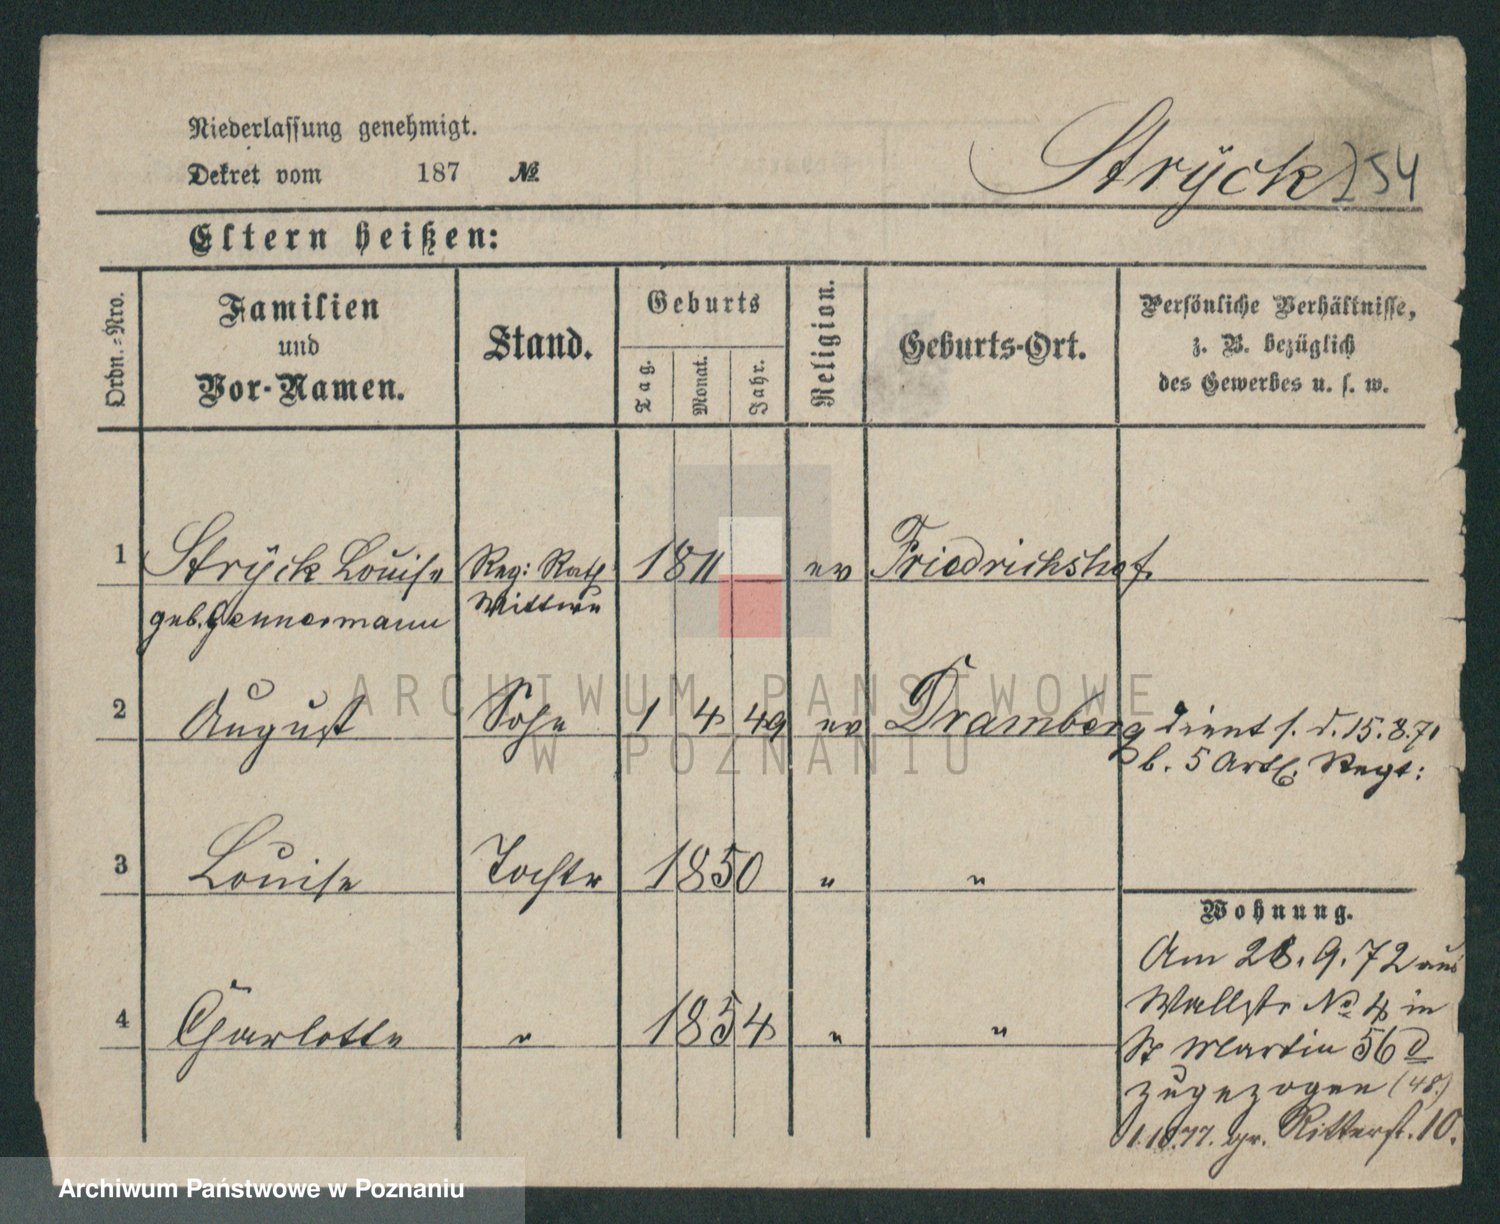 Niederlassung genehmigt.
Dekret vom 187 №
Strÿck 254
Eltern heißen:
Ordn.=Nro.
Familien
und
Vor-Namen.
Stand.
Geburts
Tag.
Monat.
Jahr.
Religion.
Geburts-Ort.
Persönliche Verhältnisse,
z. B. bezüglich
des Gewerbes u. s. w.
1 Strÿck Louise Reg: Rath 1811 ev Friedrichshof
geb. Wittwe
2 August Sohn 1 4 49 ev Dramberg dient s. d. 15.8.71
b. 5 Artl. Regt:
3 Louise Tochter 1850 " "
Wohnung.
4 Charlotte " 1854 " "
Am 28. 9. 72 aus
Wallstr No 4 in
St Martin 56 d
zugezogen (48.)
1.10.77. Ritterstr. 10.
ARCHIWUM PAŃSTWOWE
W POZNANIU
Archiwum Państwowe w Poznaniu